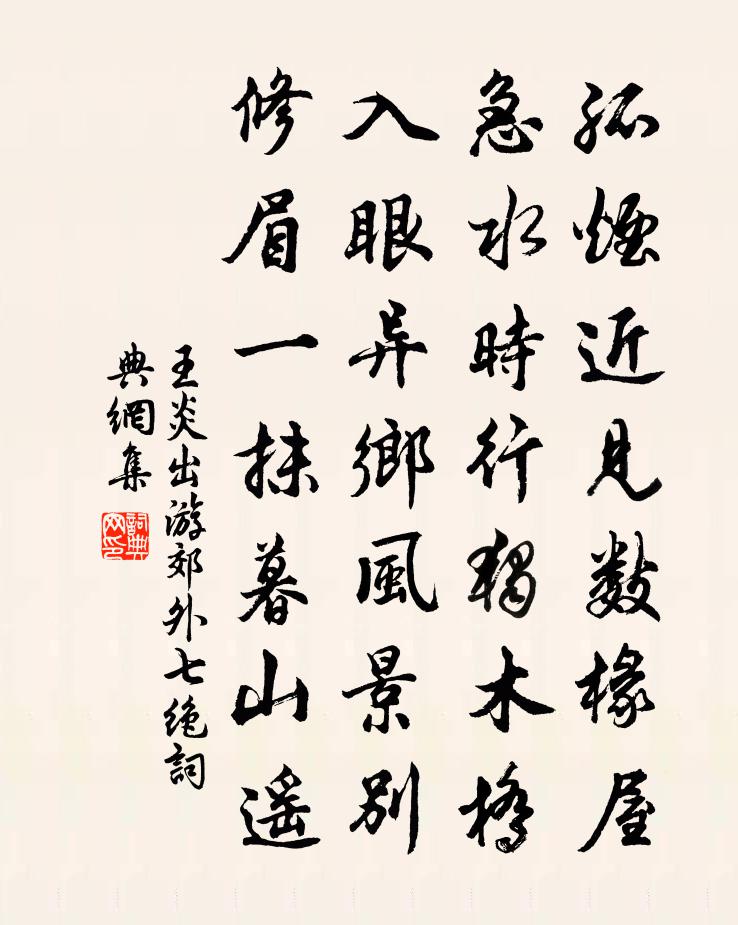 孤煙近見數椽屋
急水時行獨木橋
入眼异鄉風景別
修眉一抹暮山遥
王炎出游郊外七絶詞
典網集
詞典网印